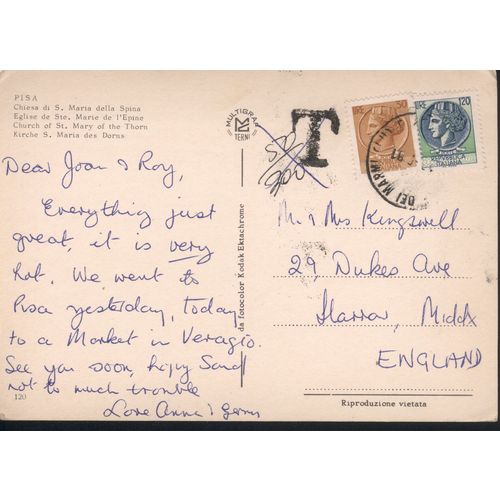 PISA
Chiesa di S. Maria della Spina
Eglise de Ste. Marie de l'Epine
Church of St. Mary of the Thorn
Kirche S. Maria des Dorns
MULTIGRAF
TERNI
T
LIRE 50
LIRE 120
DEI MARMI
Dear Joan & Roy,
Everything just
great, it is very
hot. We went to
Pisa yesterday, Today
to a Market in
See you soon, hope
not to much trouble
Love Anna &
120
da fotocolor Kodak Ektachrome
Mr & Mrs Kingswell
29, Dukes Ave
Harrow, Middx
ENGLAND
Riproduzione vietata